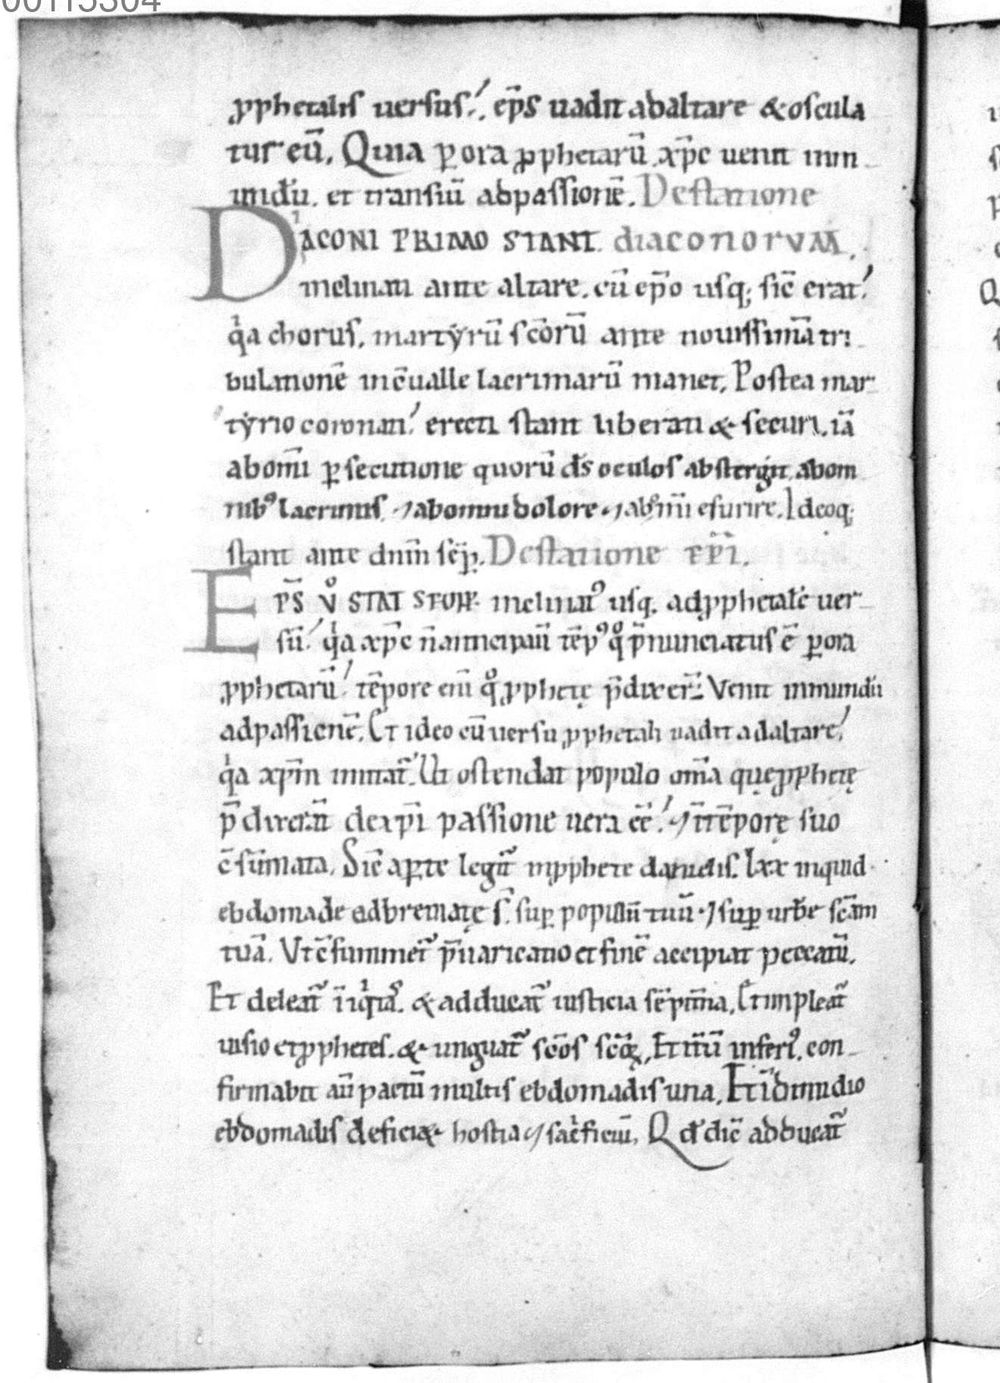 00115304
ꝓphetalis uersus; ep̄s uadit ad altare & oscula
tur eū, Quia ꝑ ora ꝓphetarū xp̄c uenit inm
undū. et transiit ad passionē. De statione
DIACONI PRIMO STANT. diaconorum.
inclinati ante altare. cū ep̄o usq; sic̄ erat;
q̇a chorus, martẏrū sc̄orū ante nouissimā tri
bulationē in c̄ualle lacrimarū manet, Postea mar
tẏrio coronati, erecti stant liberati & securi. iā
ab om̄i ꝑsecutione quorū ds̄ oculos abstergit, ab om
nibꝰ lacrimis, ⁊ ab omni dolore ⁊ ab om̄i esurire. Ideoq;
stant ante dn̄m sēp. De statione ep̄i.
EP̄S Vͦ STAT SEMP. inclinatꝰ usq. ad ꝓphetalē uer
sū; q̇a xp̄c n̄ antiei tēpꝰ qͦ p̄nunciatus ē ꝑ ora
ꝓphetarū; tēpore eni qͦ ꝓphetę p̄dixer̄. Venit in mundū
ad passionē. Et ideo cū uersu ꝓphetali uadit ad altare;
q̇a xp̄m imitat̄. Ut ostendat populo om̄a quę ꝓphetę
p̄dixer̄ de xp̄i passione uera ēē; ⁊ in tēporę suo
c̄sūmata. Sic̄ aꝑte legit̄ in ꝓphete danielis. lxx inquid
ebdomade adbreuiatę s̄. suꝑ populū tuū ⁊ suꝑ urbē sc̄am
tuā. Ut c̄summet̄ p̄uaricatio et finē accipiat peccatū.
Et deleat̄ iniq̇tas. & adducat̄ iusticia sēpitn̄a, Et impleat̄
uisio et ꝓphetes. & unguat̄ sc̄os sc̄oꝝ, Et itū inferiꝰ. con
firmabit aū pactū multis ebdomadis una, Et in dimidio
ebdomadis deficiet hostia ⁊ sac̄ficiū, Qd̄ dic̄ adducat̄